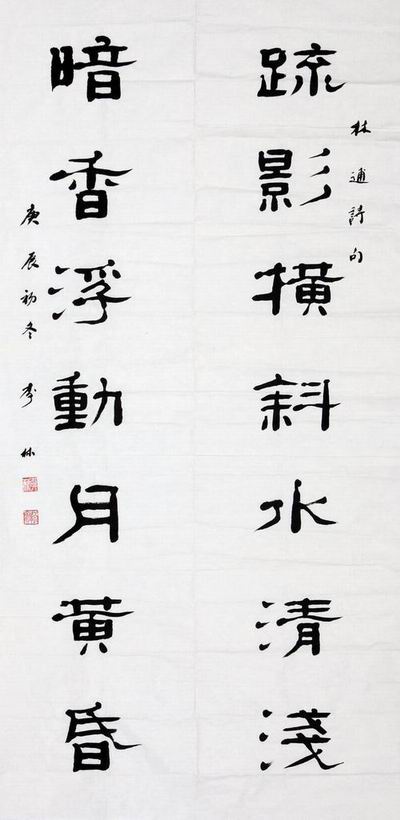 林逋詩句
疏影橫斜水清淺
暗香浮動月黃昏
庚辰初冬 秀林